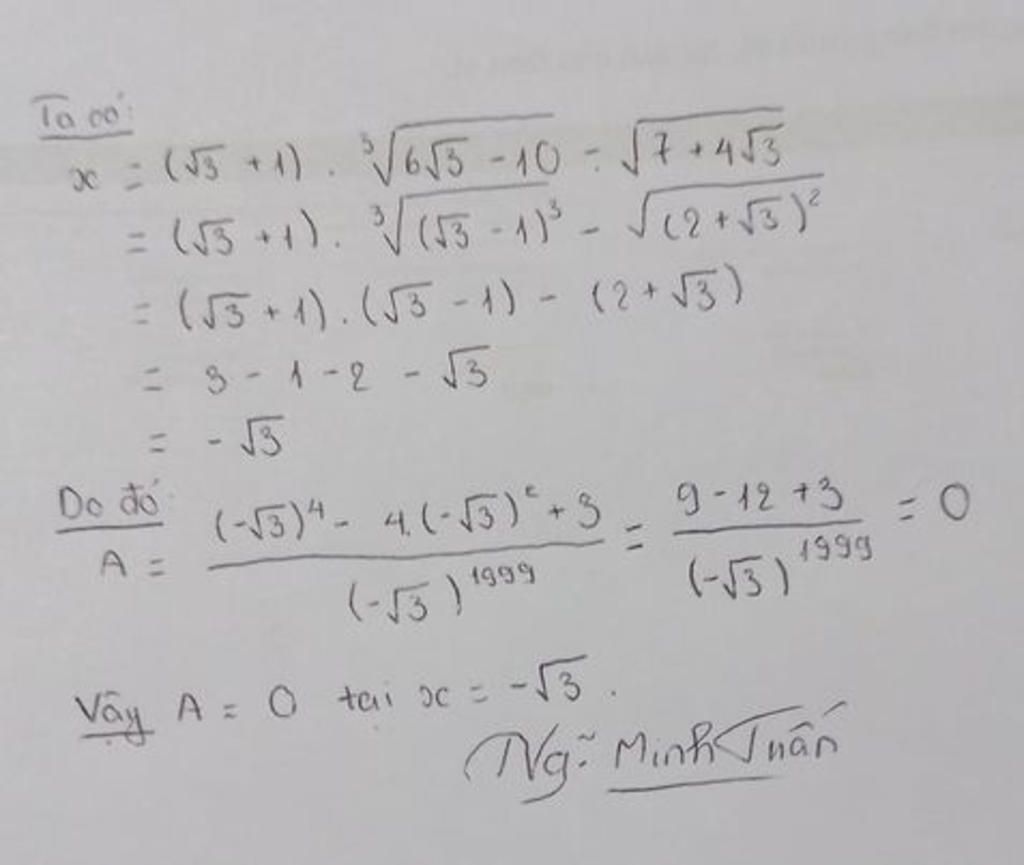 Ta có:
x = (√3 + 1) . ∛(6√3 - 10) - √(7 + 4√3)
= (√3 + 1) . ∛((√3 - 1)³) - √((2 + √3)²)
= (√3 + 1) . (√3 - 1) - (2 + √3)
= 3 - 1 - 2 - √3
= - √3
Do đó:
A = ((-√3)⁴ - 4.(-√3)² + 3) / (-√3)¹⁹⁹⁹ = (9 - 12 + 3) / (-√3)¹⁹⁹⁹ = 0
Vậy A = 0 tại x = -√3 .
Ng̃. Minh Tuấn